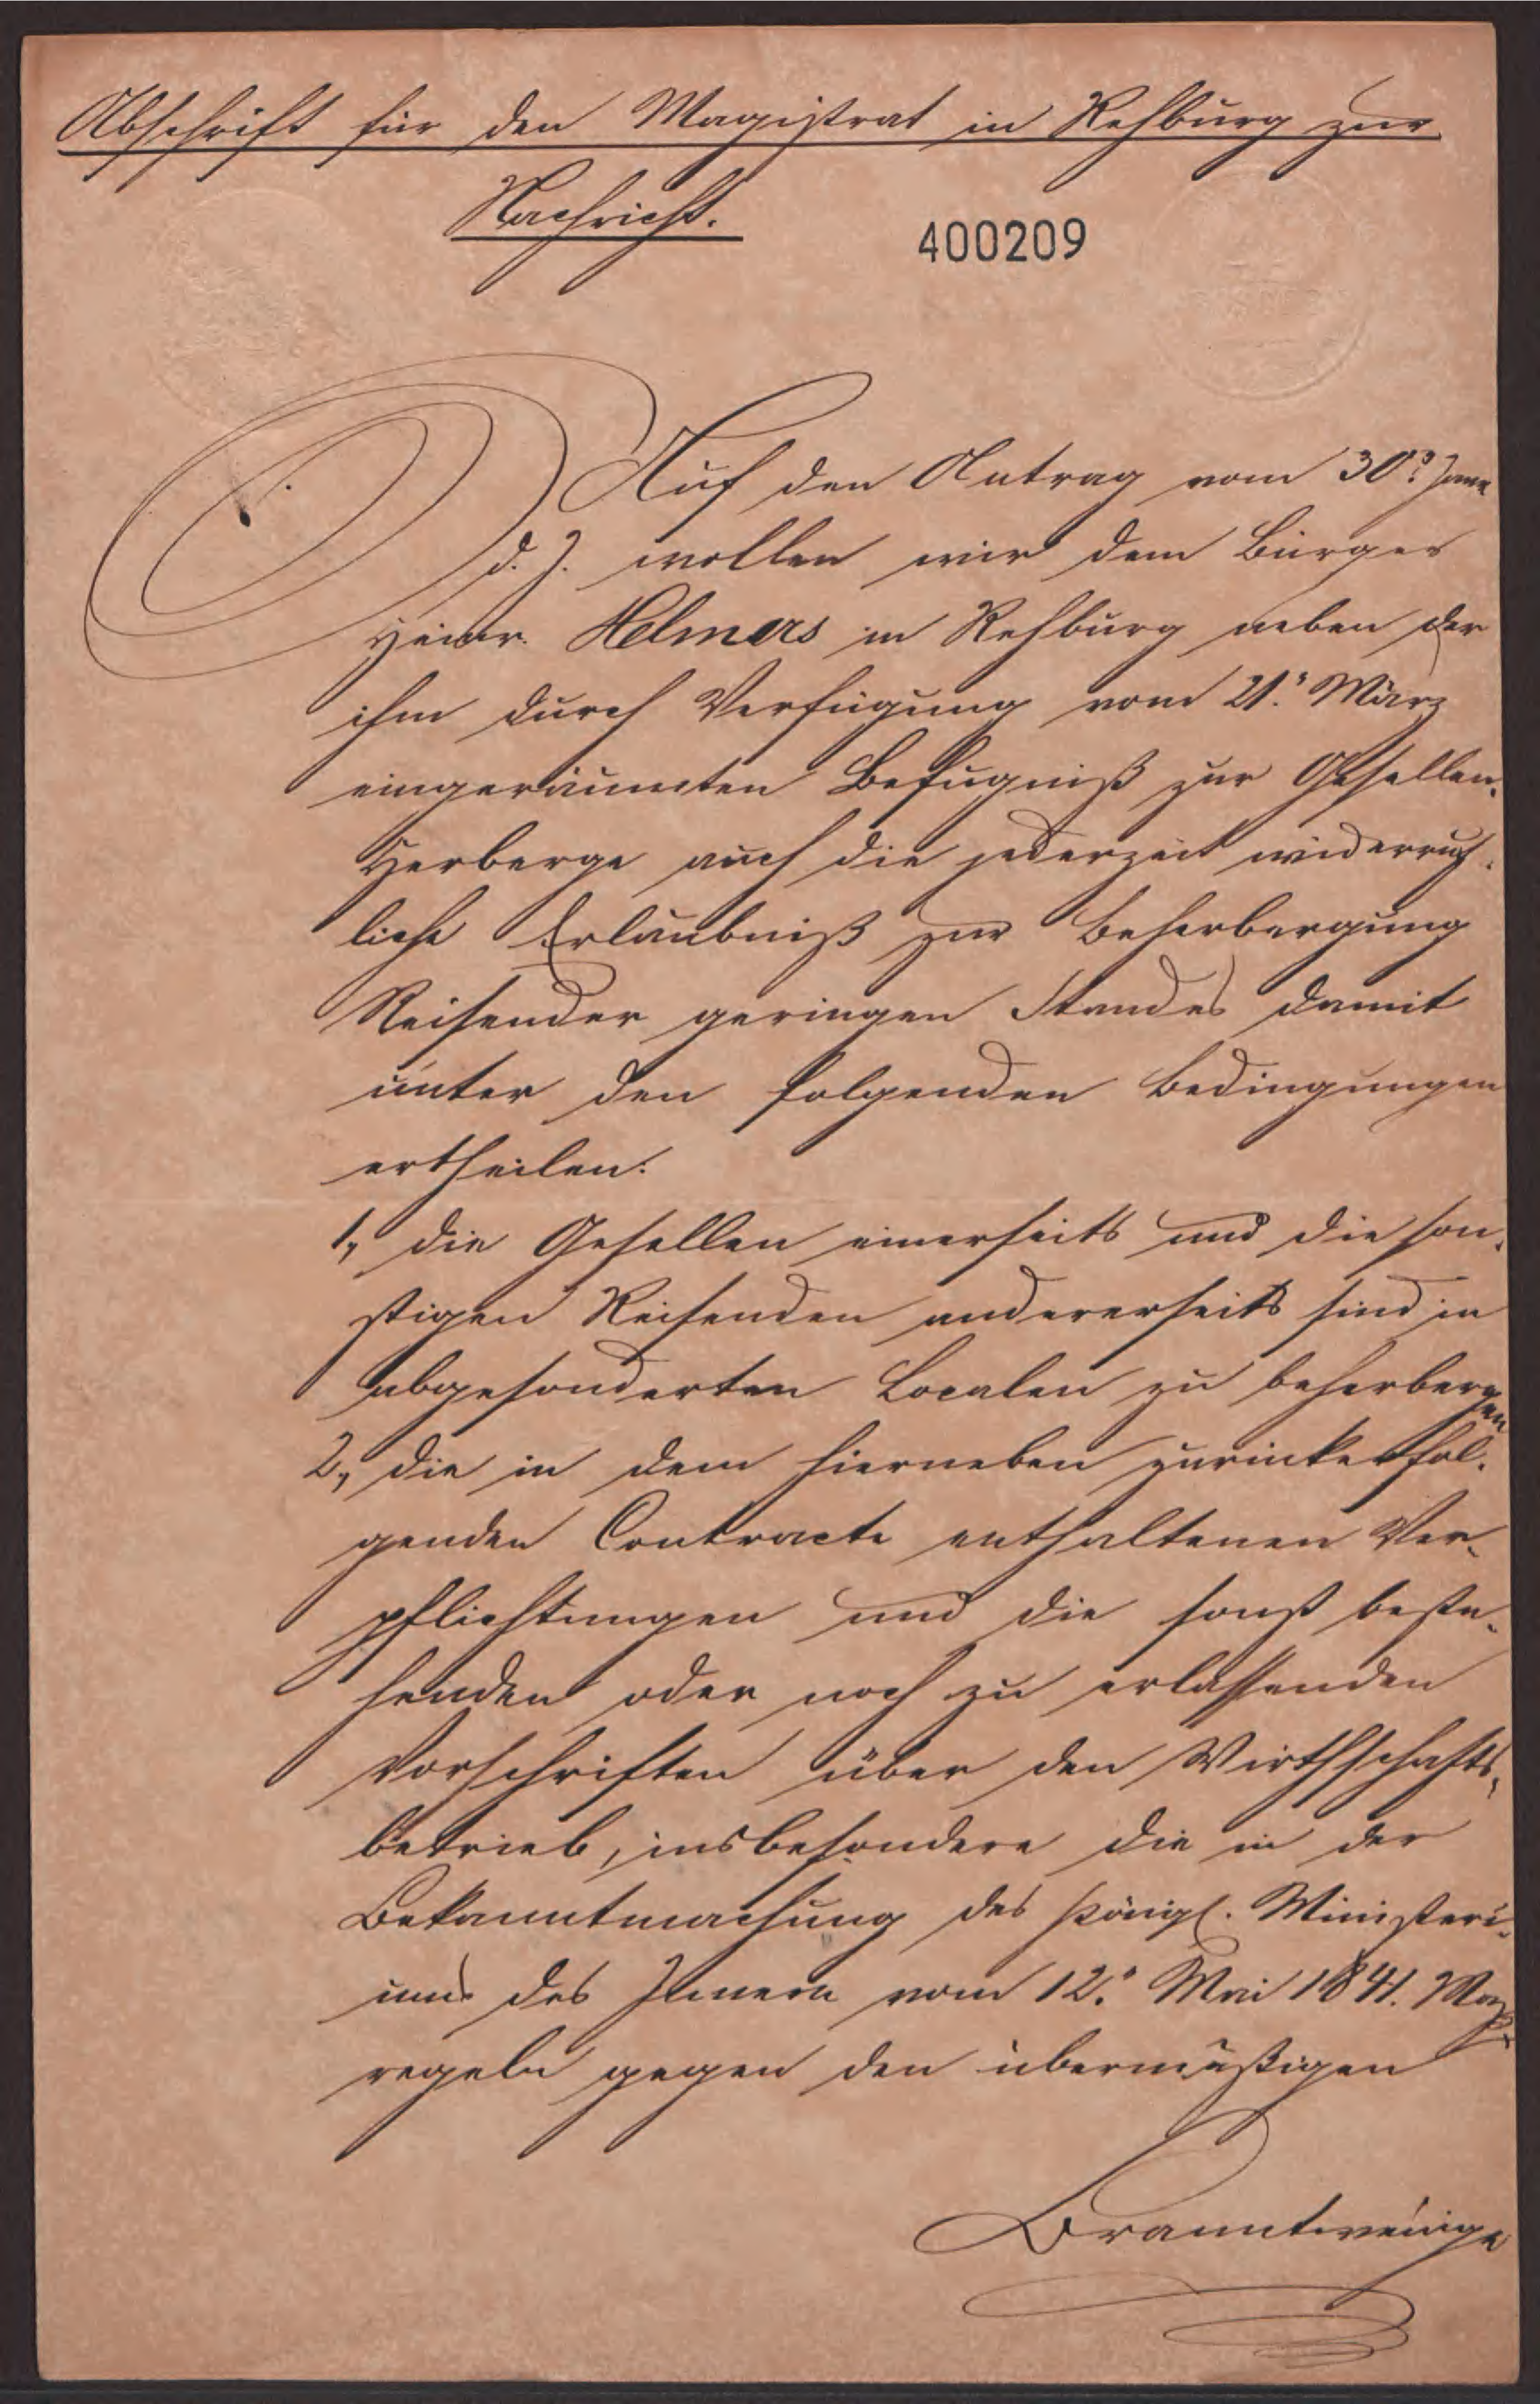 Abschrift für den Magistrat in Rehburg zur
Nachricht.
400209
Auf den Antrag vom 30.
d. J. wollen wir dem Bürger
Heinr. Helmers in Rehburg neben der
ihm durch Verfügung vom 21. März
eingeräumten Befugniß zur Gesellen-
Herberge auch die jederzeit widerruf-
liche Erlaubniß zur Beherbergung
Reisender geringen Standes damit
unter den folgenden Bedingungen
ertheilen:
1, die Gesellen einerseits und die son-
stigen Reisenden andererseits sind in
abgesonderten Localen zu beherbergen
2, die in dem hierneben zurückerfol-
genden Contracte enthaltenen Ver-
pflichtungen und die sonst beste-
henden oder noch zu erlassenden
Vorschriften über den Wirthschafts-
betrieb, insbesondere die in der
Bekanntmachung des Königl. Ministeri-
ums des Innern vom 12. Mai 1841. Maß-
regeln gegen den übermäßigen
Branntweinge